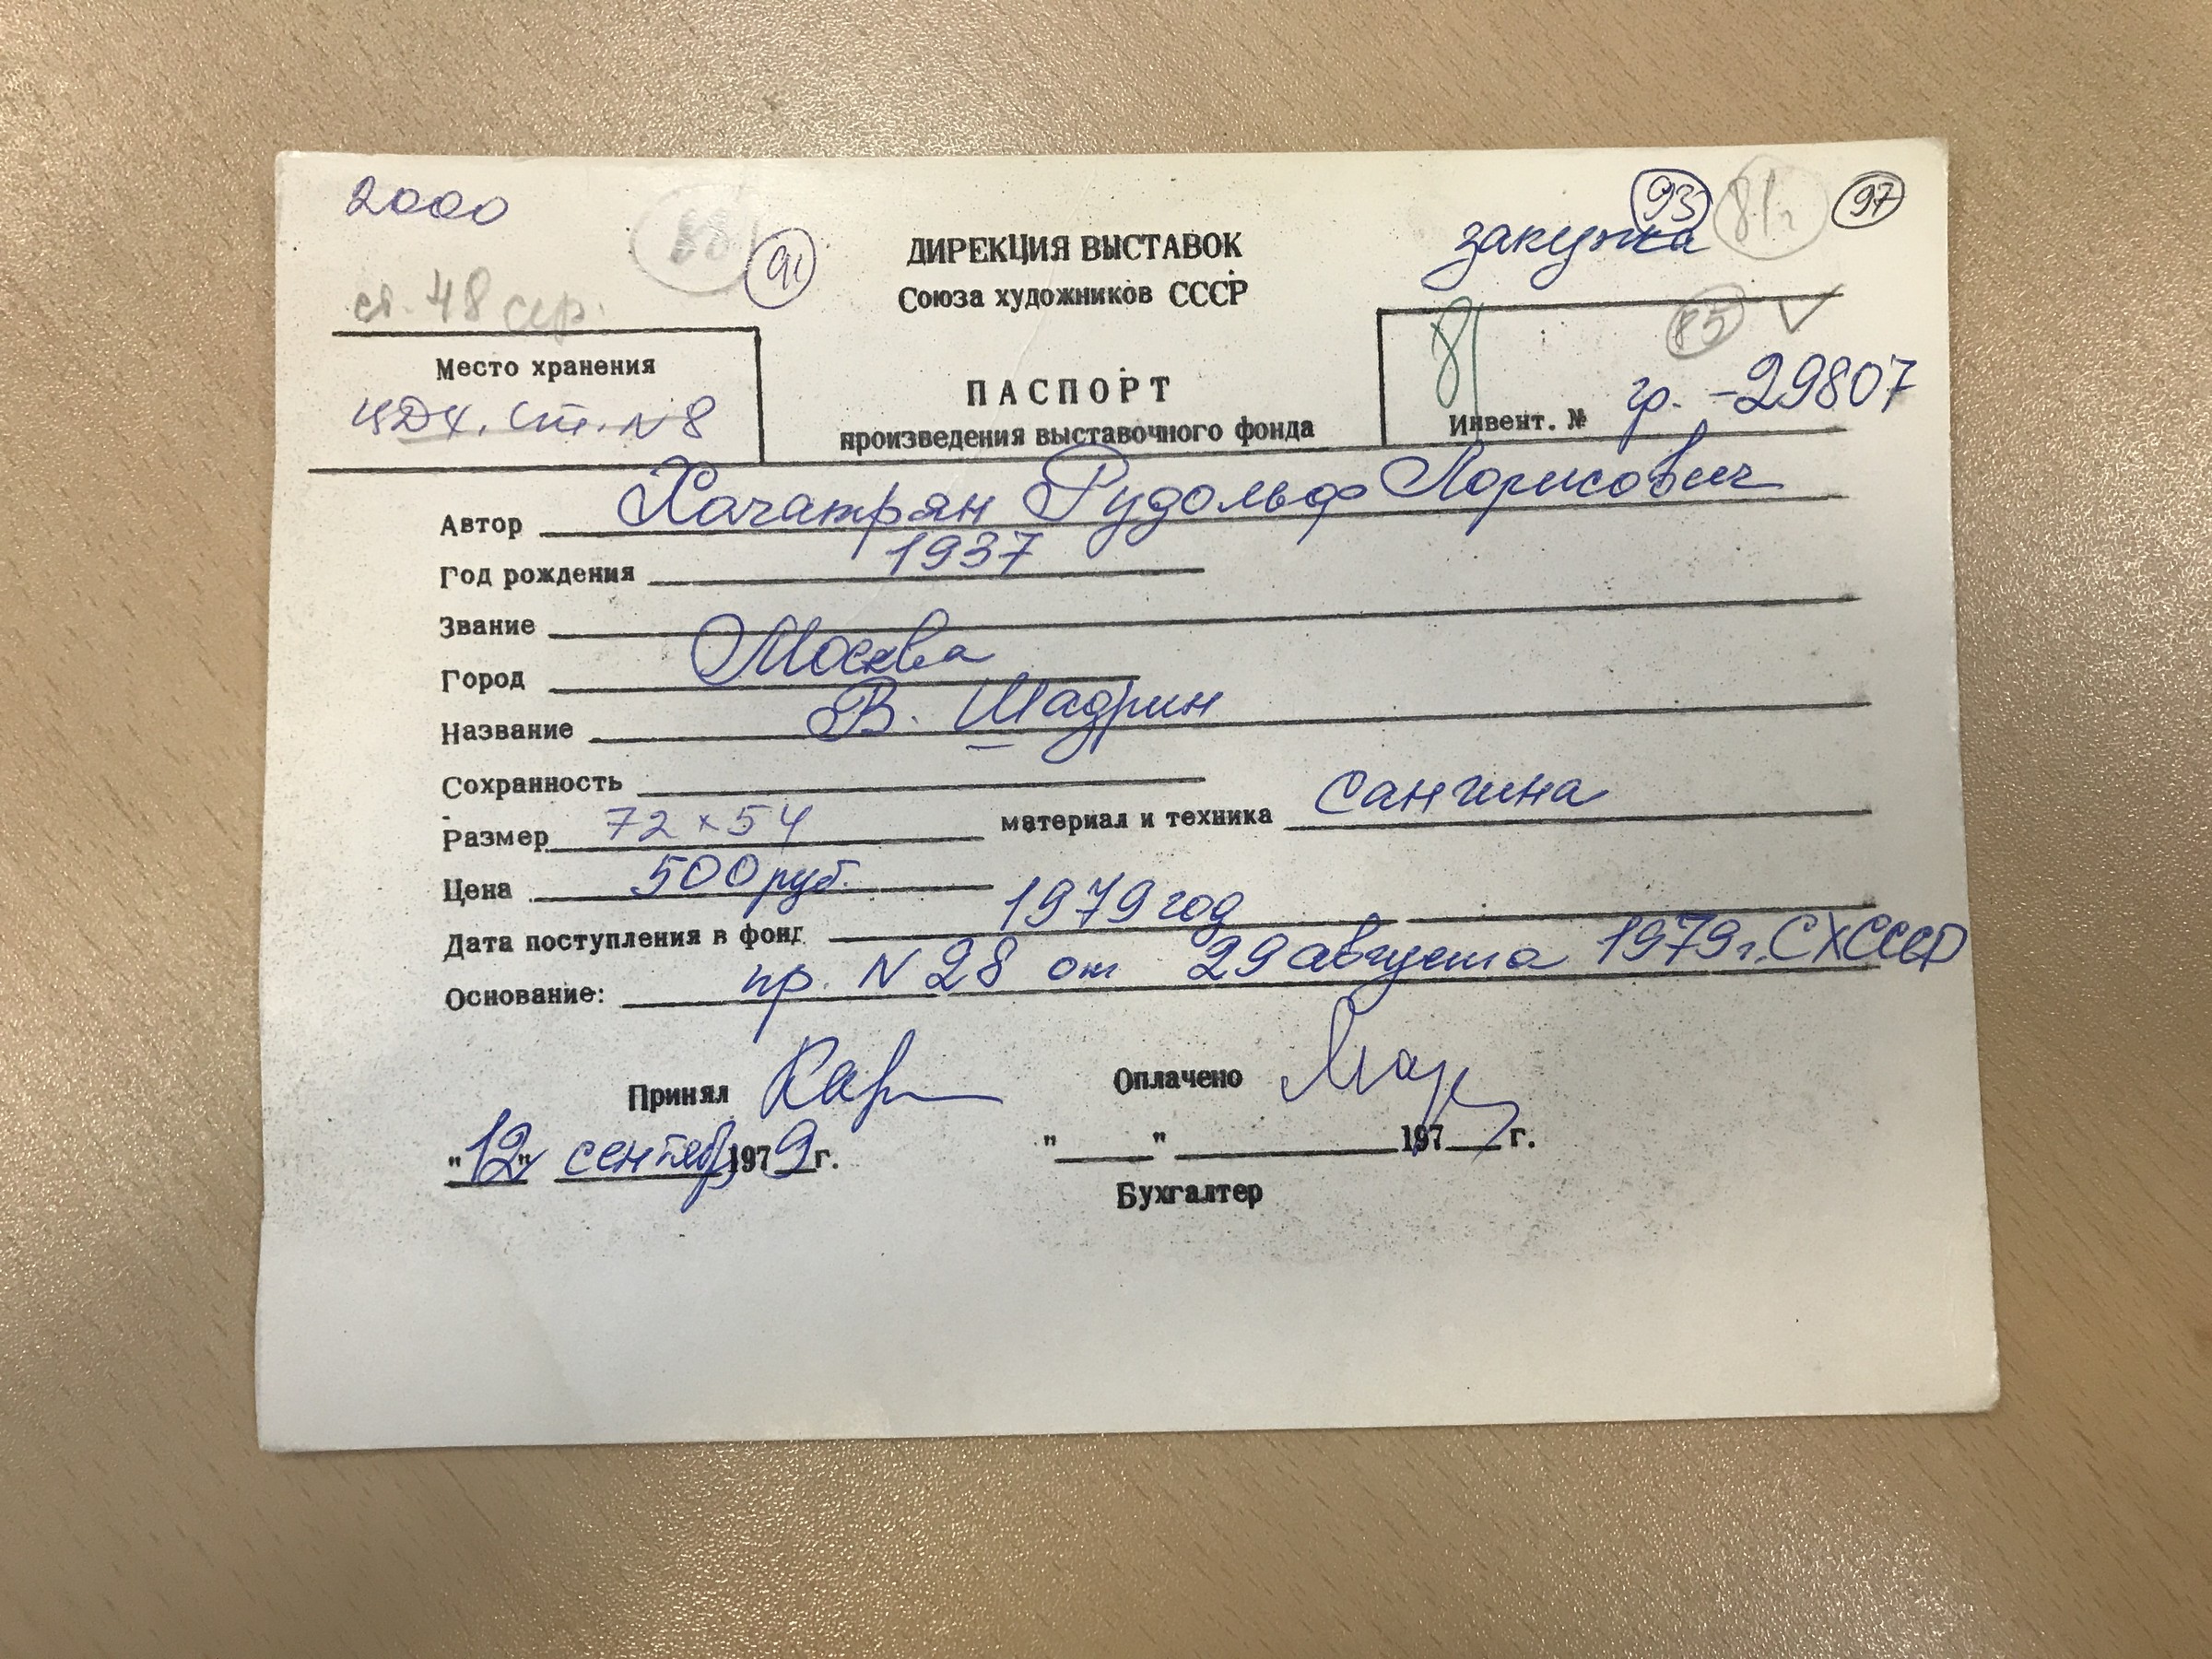 2000
88
91
93
81г
97
закупка
ДИРЕКЦИЯ ВЫСТАВОК
Союза художников СССР
ст. 48 сер.
81
85
Место хранения
ЦДХ. Ст. N 8
ПАСПОРТ
произведения выставочного фонда
Инвент. № гр. -29807
Автор Хачатрян Рудольф Лорисович
Год рождения 1937
Звание
Город Москва
Название В. Шадрин
Сохранность
Размер 72 х 54 материал и техника Сангина
Цена 500 руб.
Дата поступления в фонд 1979 год
Основание: пр. N 28 от 29 августа 1979 г. СХСССР
Принял
Оплачено
"12" сентябр 1979 г.
" " 197 г.
Бухгалтер